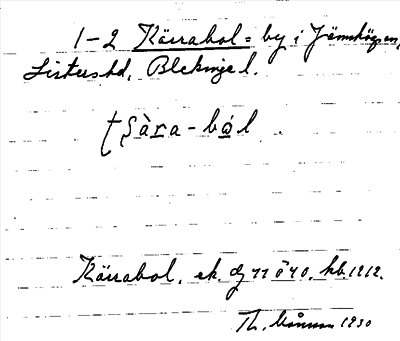 1-2 Kärrabol = by i Jämshög sn,
Listers hd, Blekinge l.
tʂàra-bål
Kärrabol, ek. bl 11 ö 40, hb. 1212.
Th. 1930